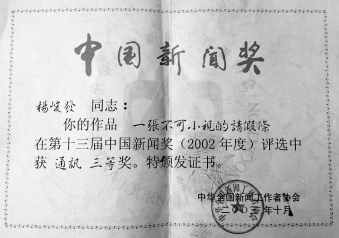 中国新闻奖
楊峻發 同志：
你的作品 一張不可小視的請假條
在第十三届中国新闻奖（2002年度）评选中
获 通訊 三等奖。特颁发证书。
中华全国新闻工作者协会
十月